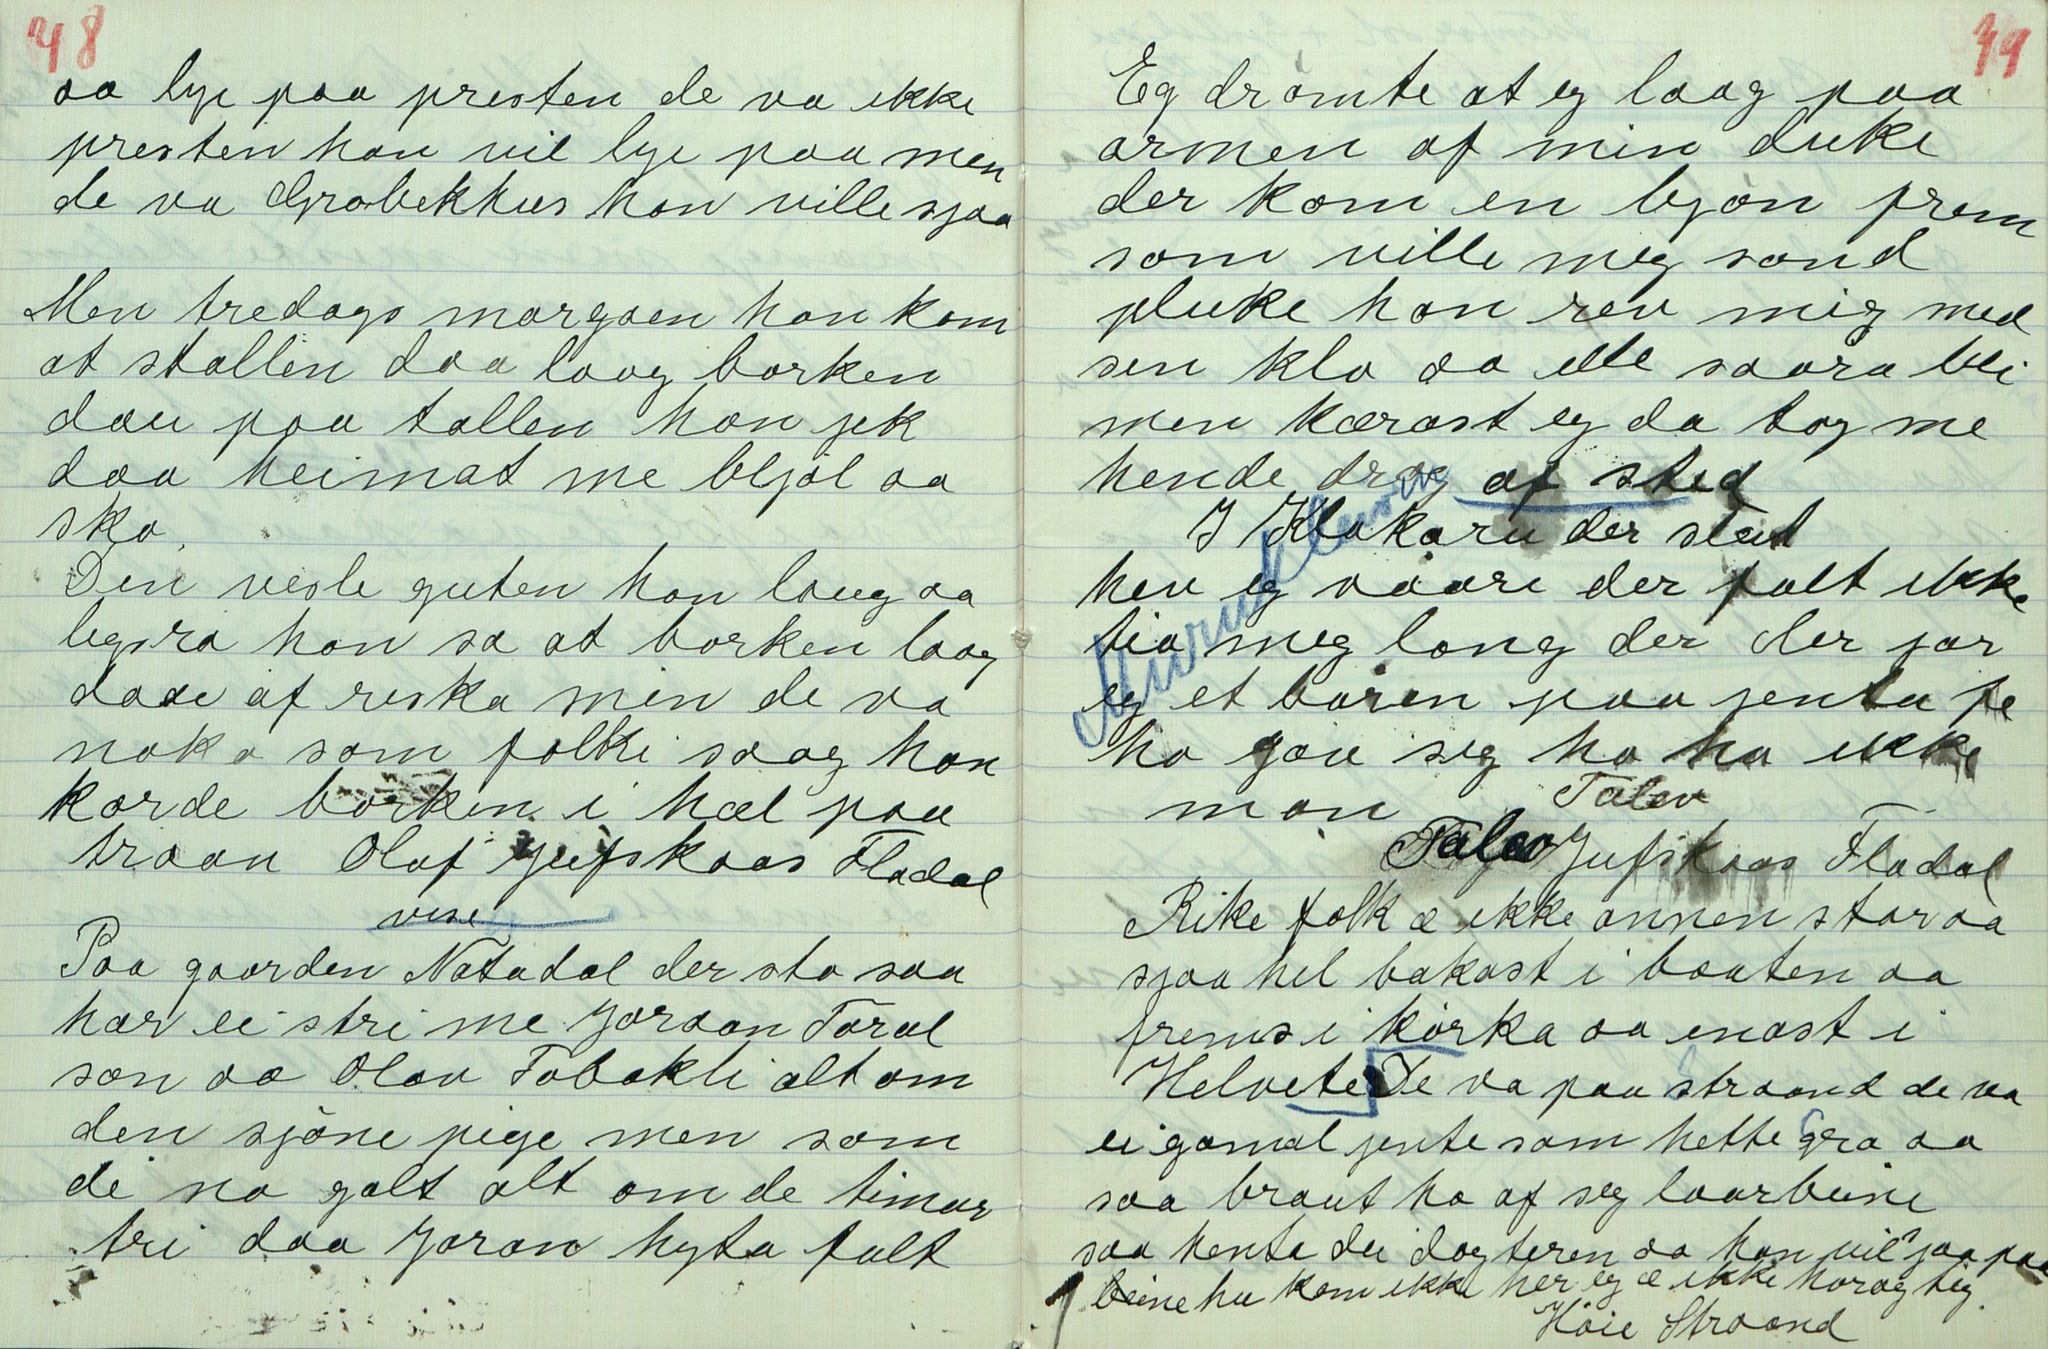 48
aa lye paa presten de va ikke
presten han vil lye paa men
de va Grobekkhus han ville sjaa
Men tredags morgaen han kom
at stallen daa laag borken
dau paa tallen han jek
daa heimat me bljøl aa
sko.
Den vesle guten han laug aa
begøra han sa at borken laag
daae af reska min de va
noka som folki saag han
kørde borken i hæl paa
traan Olaf Jufskaas Fladal
vise
Paa gaarden Natadal der sto saa
har ei stri me Joraan Toral
søn aa Olav Tobakli alt om
den sjöne pige men som
di na galt alt om de timar
tri daa Joron hyta falt
49
Eg drømte at eg laag paa
armen af min duke
der kom en bjøn frem
som ville meg sond
pluke han rev mig med
sen klo aa ille saara blei
men kærast eg da tog me
hende drog af sted
I Klokaru der slut
hev eg vaare der falt ikke
tia meg long der der jor
eg et baren paa jenta fe
ho gav seg ho ha ikke
mon Talev
Talev Jufskaas Fladal
Rike folk æ ikke annen stor aa
sjaa hel bakast i baaten aa
frems i kørka aa enast i
Helvete De va paa straand de va
ei gamal jente som hette Gro aa
saa braut ho af seg laarbeine
saa henta dei dogteren aa han vil sjaa paa
beine hu kom ikke her eg æ ikke horag tig
Høie Straand